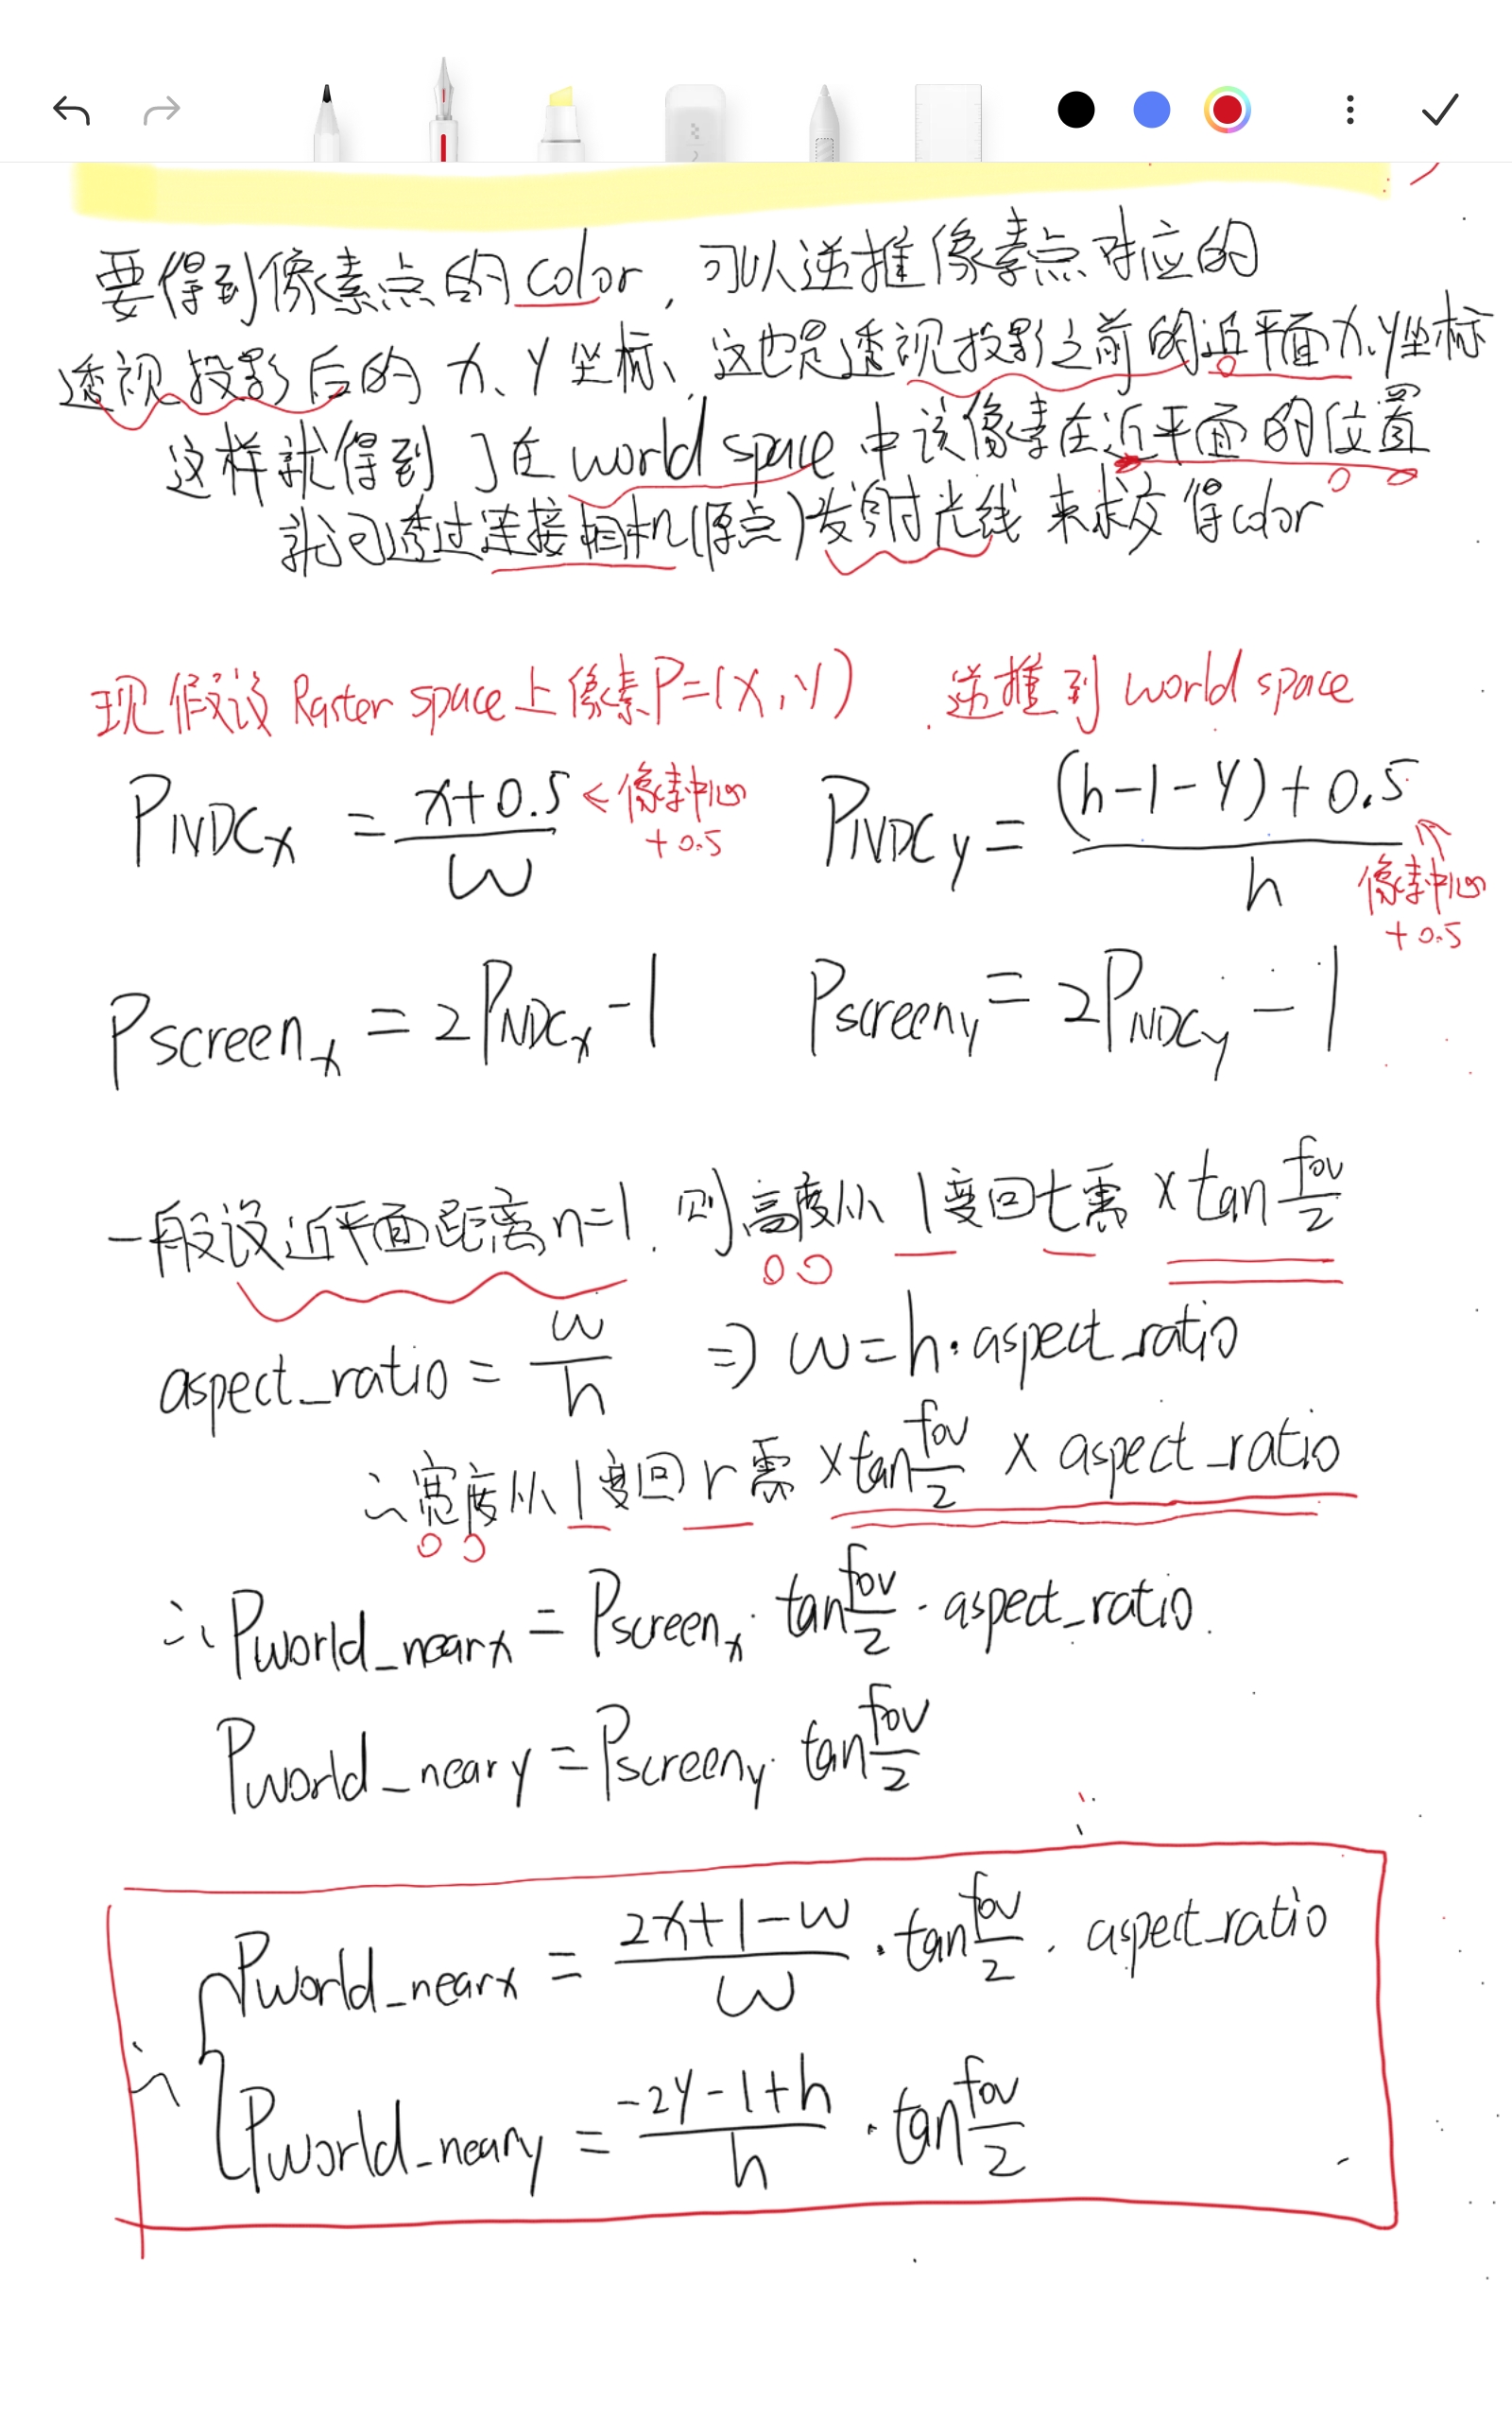 要得到像素点的color，可以逆推像素点对应的
透视投影后的 x、y 坐标、这也是透视投影之前的近平面x、y坐标
这样就得到了在 world space 中该像素在近平面的位置
就可透过连接相机(原点)发射光线 来求交得color
现假设 Raster space上像素P=(x,y) 逆推到 world space
P_NDCx = (x+0.5)/w ← 像素中心 +0.5 P_NDCy = ((h-1-y)+0.5)/h ↑ 像素中心 +0.5
P_screenx = 2P_NDCx - 1 P_screeny = 2P_NDCy - 1
一般设近平面距离n=1. 则高度从 1变回t需 ×tan fov/2
aspect_ratio = w/h ⇒ w=h·aspect_ratio
∴宽度从1变回r需 ×tan fov/2 × aspect_ratio
∴ P_world_nearx = P_screenx · tan fov/2 · aspect_ratio.
P_world_neary = P_screeny · tan fov/2
∴ { P_world_nearx = (2x+1-w)/w · tan fov/2 · aspect_ratio
P_world_neary = (-2y-1+h)/h · tan fov/2